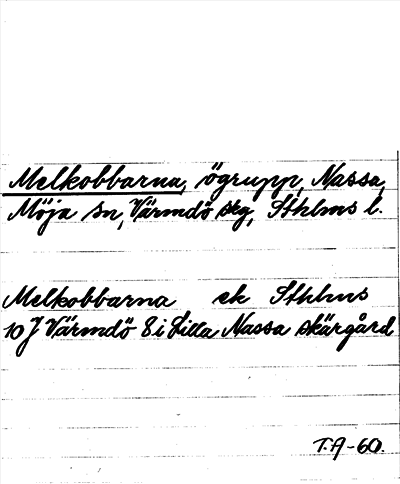 Melkobbarna, ögrupp, Nassa,
Möja sn, Värmdö skg, Sthlms l.
Melkobbarna ek Sthlms
10 J Värmdö 8 i Lilla Nassa skärgård
T.A-60.